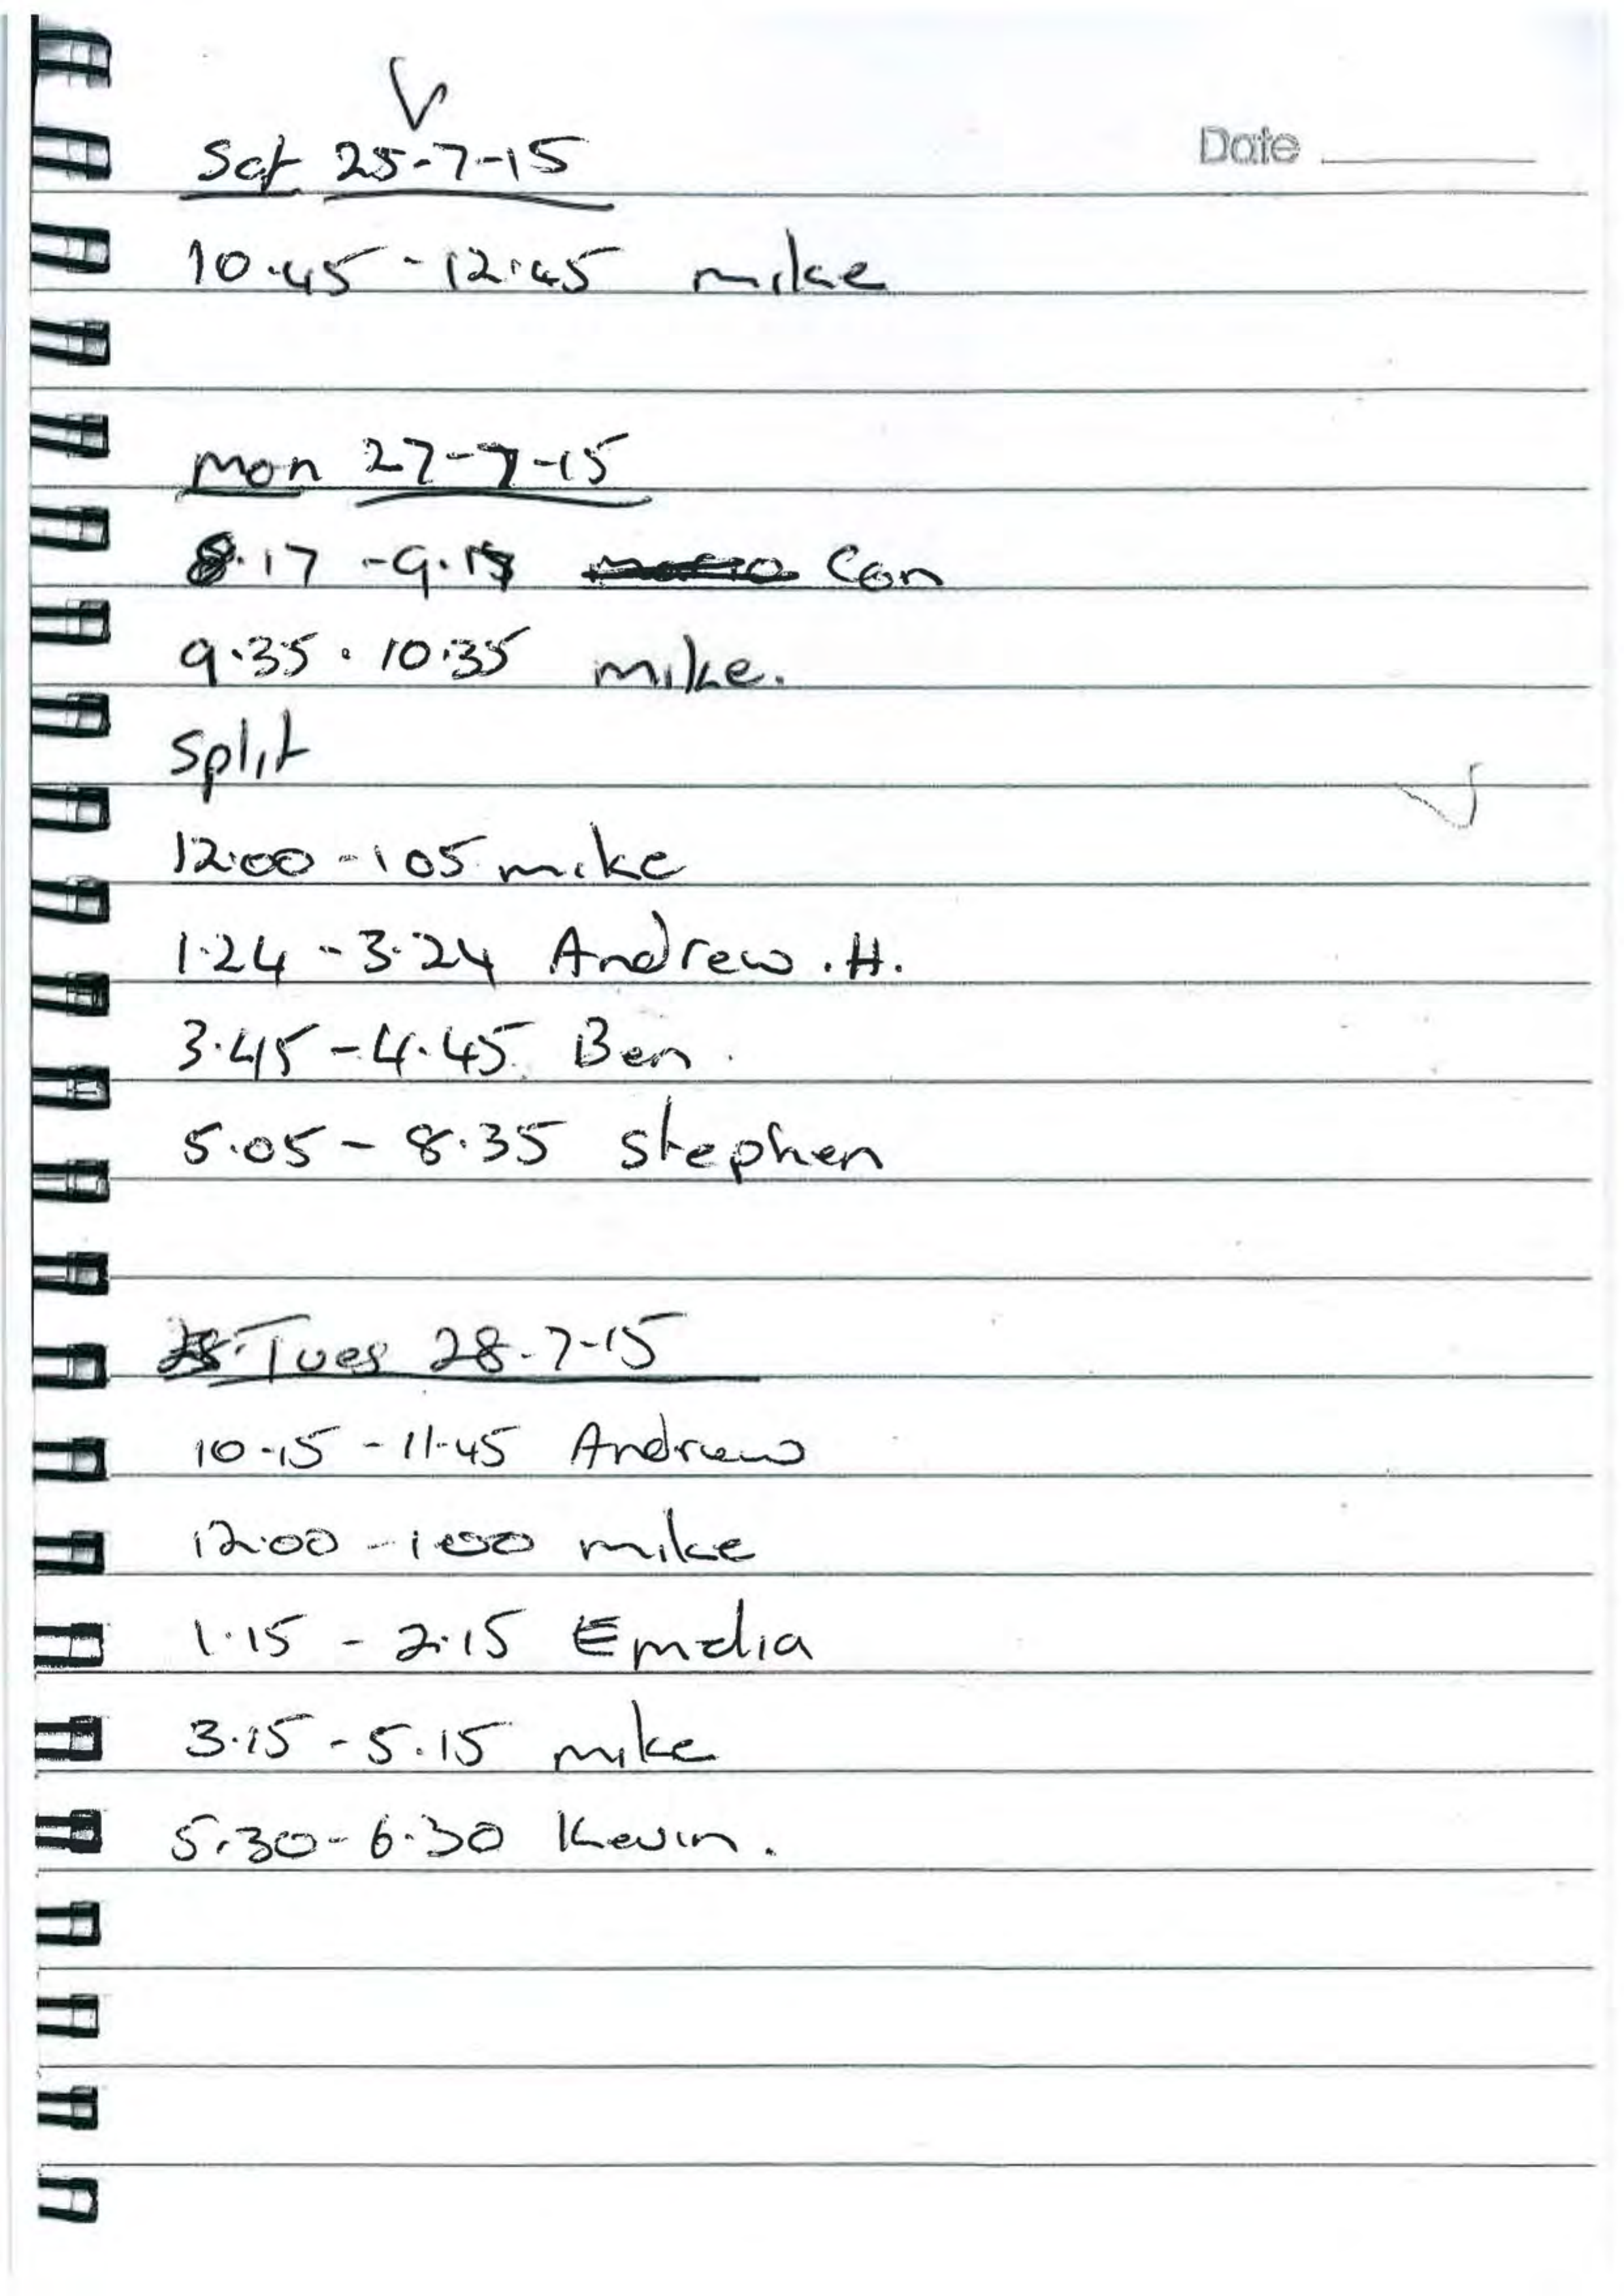 Date
Sat 25-7-15
10.45 - 12.45 mike
Mon 27-7-15
8.17 - 9.15 Con
9.35 . 10.35 mike.
Split
12.00 - 1 05 mike
1.24 - 3.24 Andrew . H.
3.45 - 4.45 Ben.
5.05 - 8.35 Stephen
Tues 28-7-15
10.15 - 11.45 Andrew
12.00 - 1.00 mike
1.15 - 2.15 Emelia
3.15 - 5.15 mike
5.30 - 6.30 Kevin.